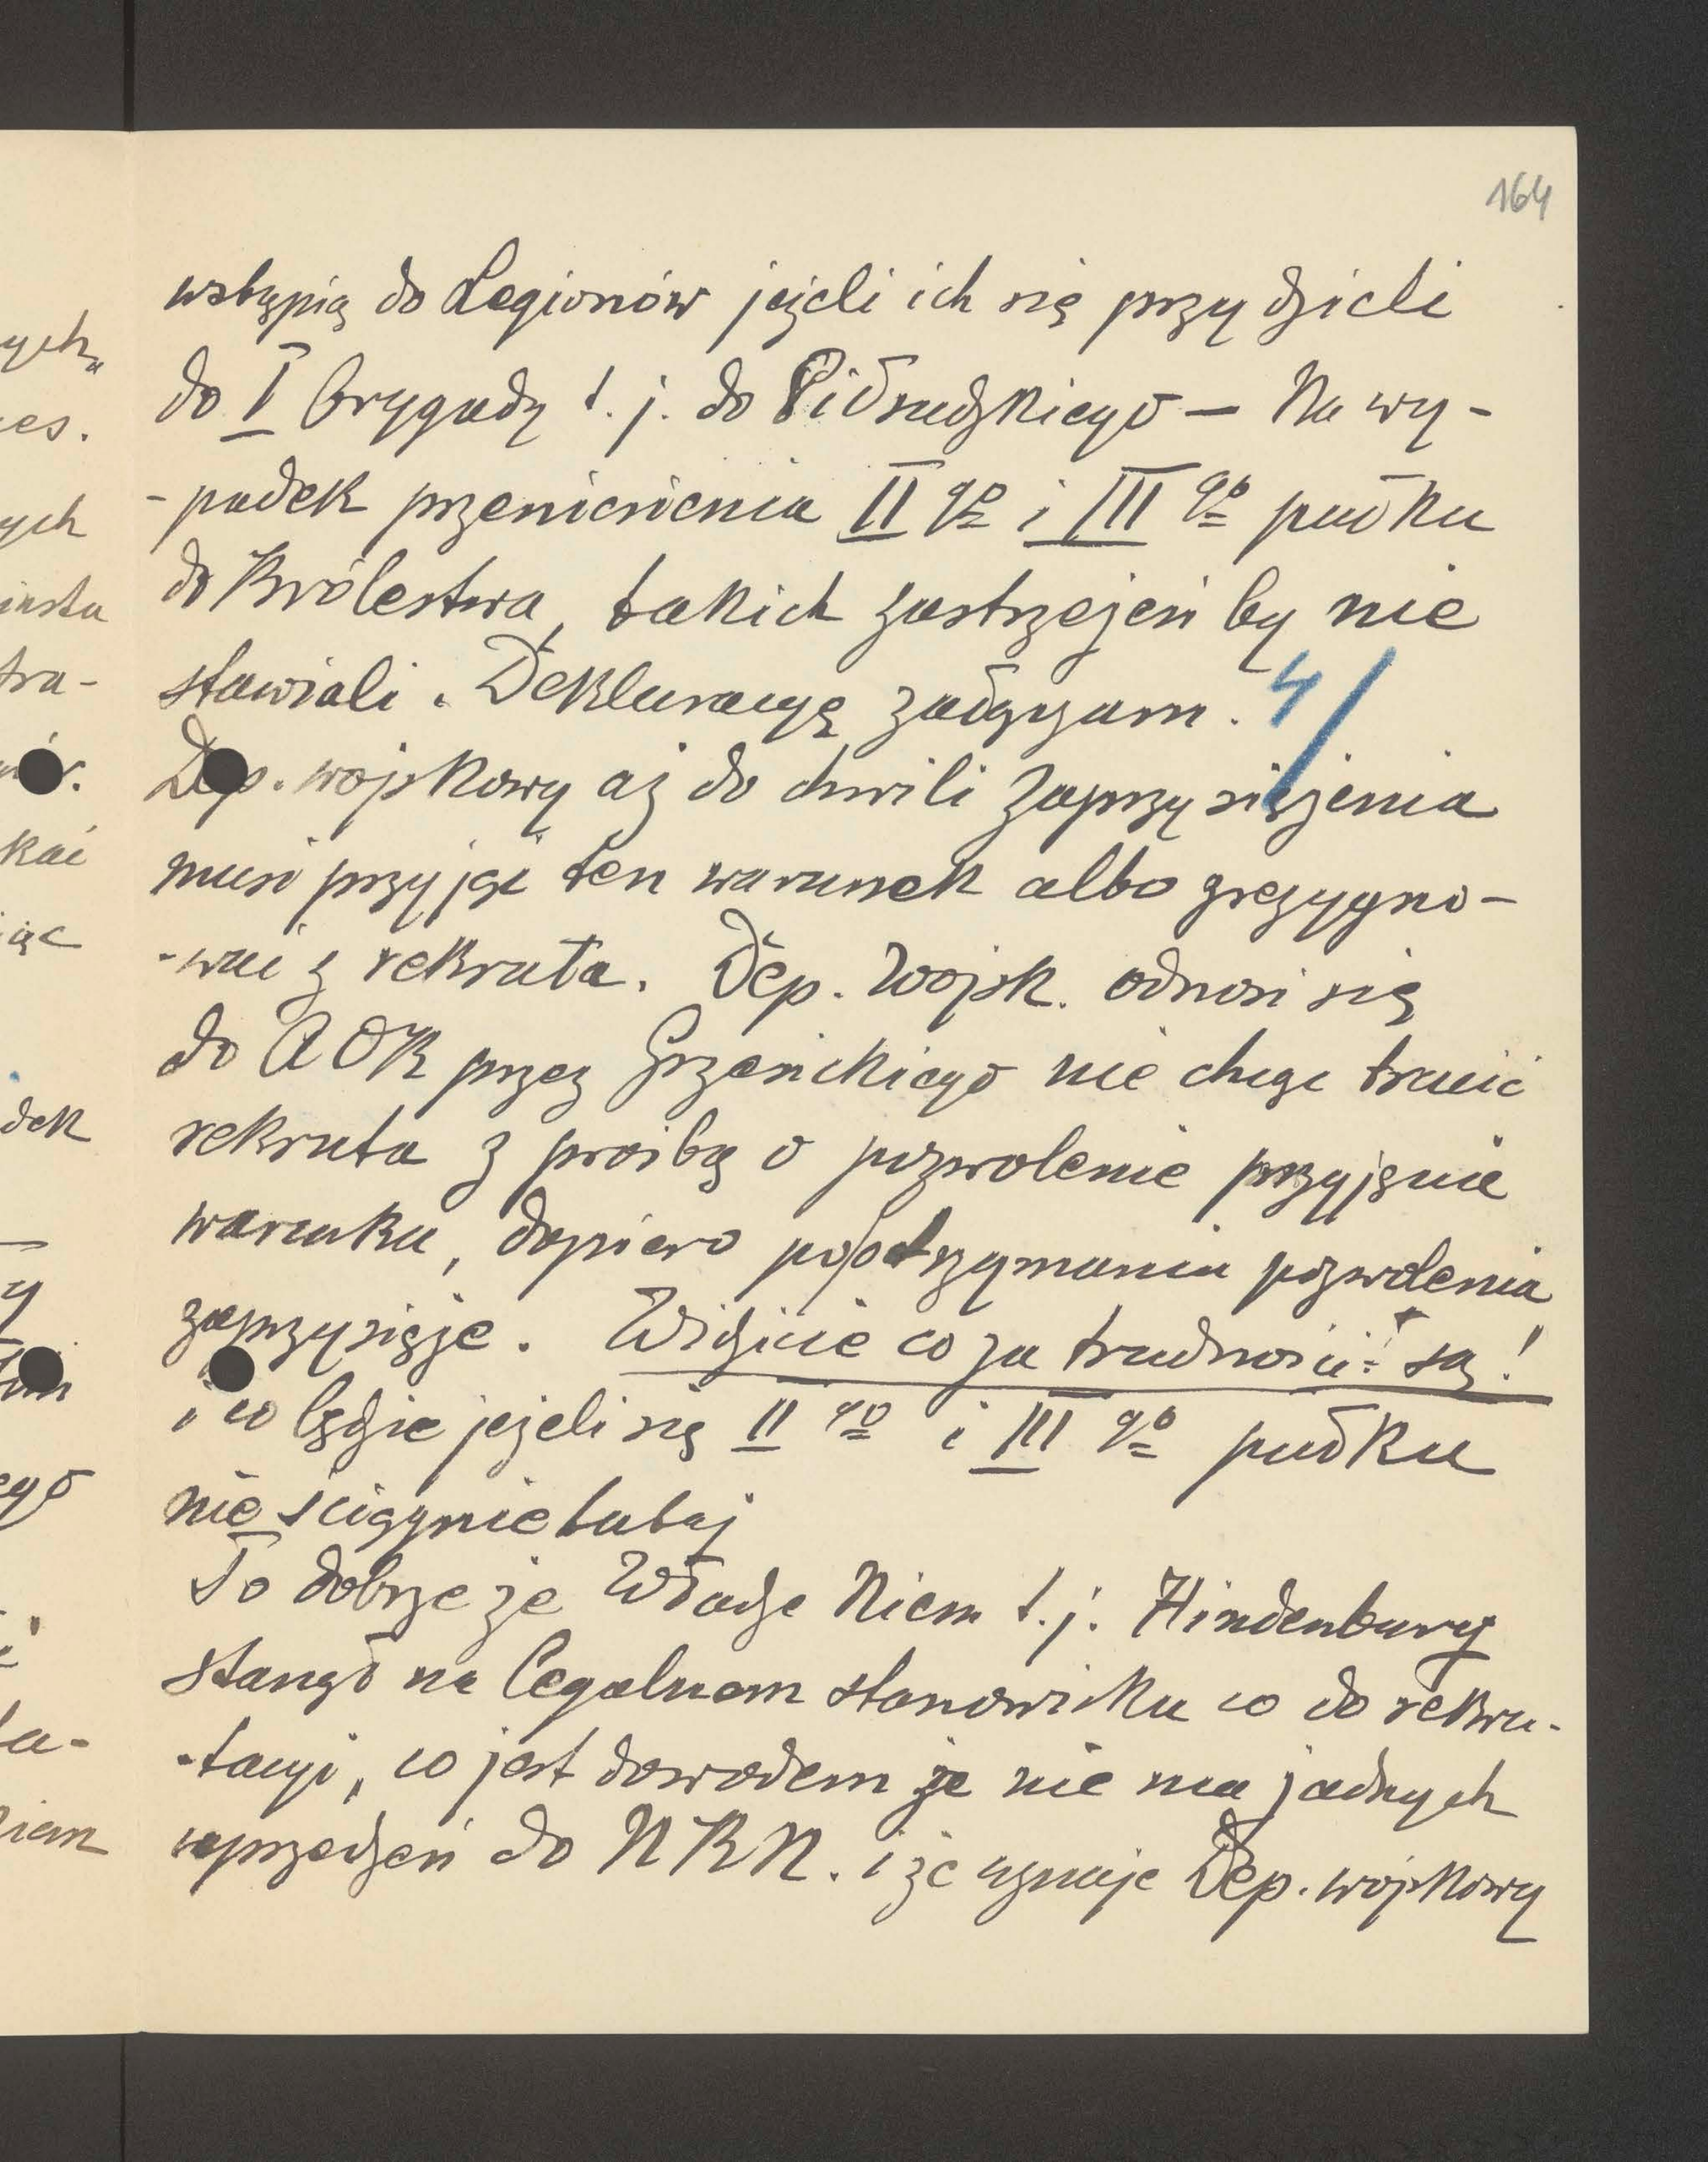 164
wstąpią do Legionów jeżeli ich się przydzieli
do I Brygady t. j. do Piłsudzkiego — Na wy-
-padek przeniesienia II go i III go pułku
do Królestwa, takich zastrzeżeń by nie
stawiali. Deklaracyę załączam. 4/
Dep. wojskowy aż do chwili zaprzysiężenia
musi przyjąć ten warunek albo zrezygno-
-wać z rekruta. Dep. Wojsk. odnosi się
do AOK przez Grzesickiego nie chcąc tracić
rekruta z prośbą o pozwolenie przyjęcie
warunku, dopiero po otrzymaniu pozwolenia
zaprzysięże. Widzicie co za trudności są!
i co będzie jeżeli się II go i III go pułku
nie ściągnie tutaj
To dobrze że Władze Niem t. j. Hindenburg
stanął na legalnem stanowisku co do rekru-
-tacyi, co jest dowodem że nie ma żadnych
uprzedzeń do NKN. i że uznaje Dep. wojskowy
ych
es.
ych
iasta
tra-
kać
iąc
dek
y
ego
ta-